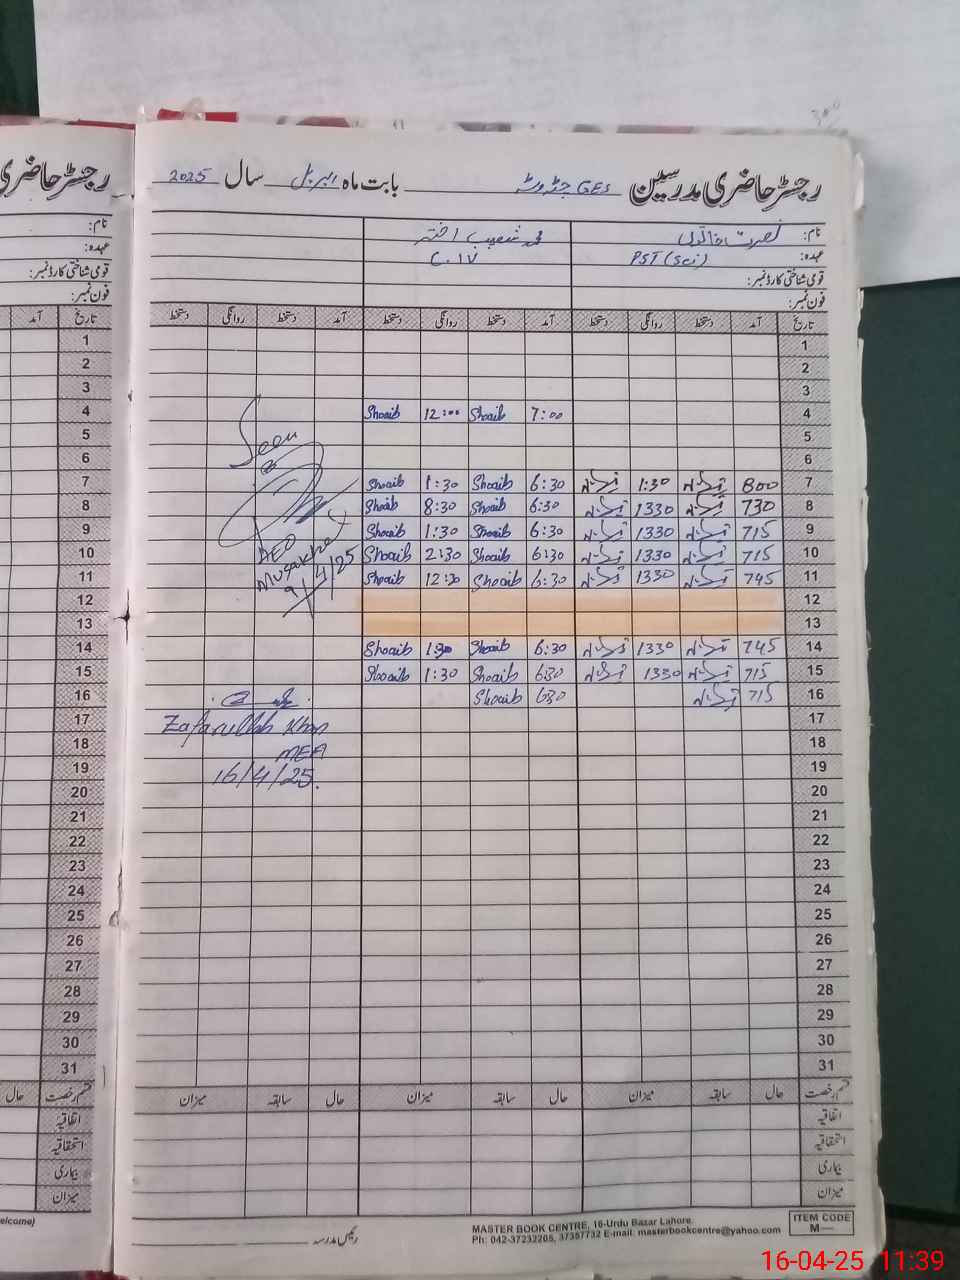 رجسٹر حاضری مدرسین GES بابت ماہ اپریل سال 2025
نام: نصرت خاتون محمد شعیب اختر
عہدہ: PST (Sci) C.IV
قومی شناختی کارڈ نمبر:
فون نمبر:
تاریخ آمد دستخط روانگی دستخط آمد دستخط روانگی دستخط آمد دستخط روانگی دستخط
1
2
3
4 7:00 Shoaib 12:00 Shoaib
5
6
7 800 1:30 6:30 Shoaib 1:30 Shoaib
8 730 1330 6:30 Shoaib 8:30 Shoaib
9 715 1330 6:30 Shoaib 1:30 Shoaib
10 715 1330 6:30 Shoaib 2:30 Shoaib
11 745 1330 6:30 Shoaib Shoaib
12
13
14 745 1330 6:30 Shoaib Shoaib
15 715 1330 630 Shoaib 1:30 Shoaib
16 715 630 Shoaib
17
18
19
20
21
22
23
24
25
26
27
28
29
30
31
Seen
AEO
Musakhel
9/4/25
Zafarullah Khan
MEA
16/4/25.
قسم رخصت حال سابقہ میزان حال سابقہ میزان حال سابقہ میزان
اتفاقیہ
استحقاقیہ
بیماری
میزان
رئیس مدرسہ
MASTER BOOK CENTRE, 16-Urdu Bazar Lahore.
Ph: 042-37232205, 37357732 E-mail: masterbookcentre@yahoo.com
ITEM CODE
M—
رجسٹر حاضری
نام:
عہدہ:
قومی شناختی کارڈ نمبر:
فون نمبر:
تاریخ آمد
1
2
3
4
5
6
7
8
9
10
11
12
13
14
15
16
17
18
19
20
21
22
23
24
25
26
27
28
29
30
31
قسم رخصت حال
اتفاقیہ
استحقاقیہ
بیماری
میزان
elcome)
16-04-25 11:39